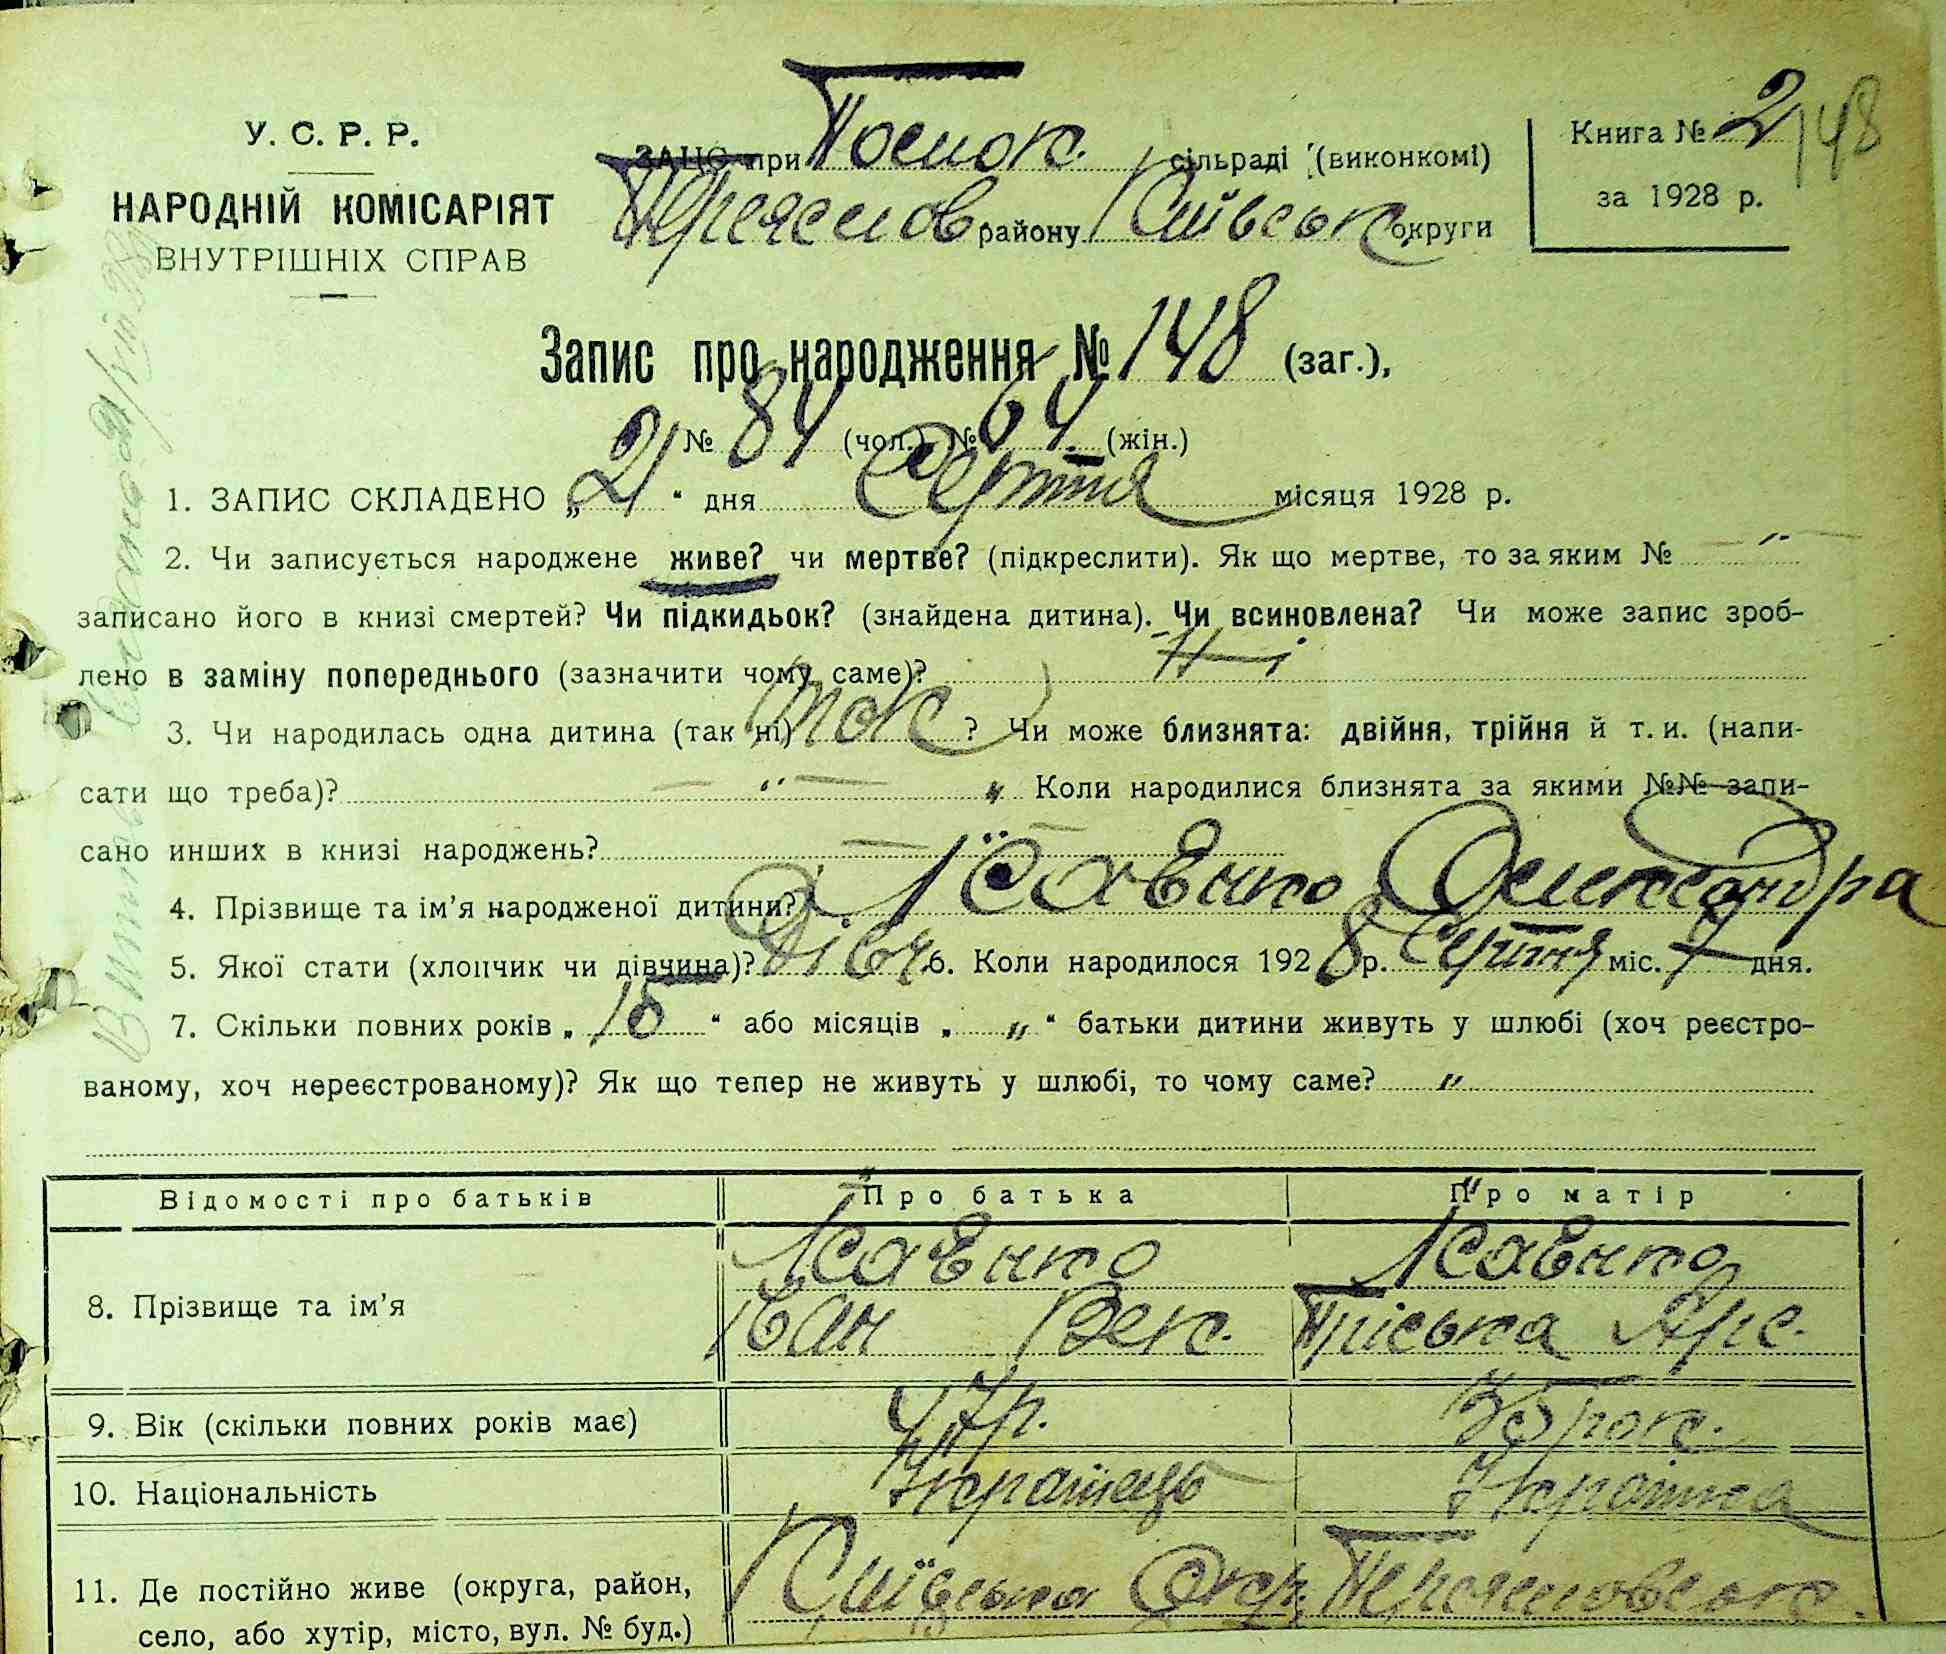 У. С. Р. Р.
НАРОДНІЙ КОМІСАРІЯТ
ВНУТРІШНІХ СПРАВ
ЗАЦС при сільраді (виконкомі)
району Київськ округи
Книга № 2
за 1928 р.
148
Запис про народження № 148 (заг.),
№ 84 (чол.) № 64 (жін.)
1. ЗАПИС СКЛАДЕНО „21“ дня Серпня місяця 1928 р.
2. Чи записується народжене живе? чи мертве? (підкреслити). Як що мертве, то за яким № — „ —
записано його в книзі смертей? Чи підкидьок? (знайдена дитина). Чи всиновлена? Чи може запис зроб-
лено в заміну попереднього (зазначити чому саме)? Ні
3. Чи народилась одна дитина (так ні) так ? Чи може близнята: двійня, трійня й т. и. (напи-
сати що треба)? — „ — „ Коли народилися близнята за якими №№ запи-
сано инших в книзі народжень?
4. Прізвище та ім'я народженої дитини? Ісаєнко Олександра
5. Якої стати (хлопчик чи дівчина)? Дівч. 6. Коли народилося 1928 р. Серпня міс. 7 дня.
7. Скільки повних років „ 15 “ або місяців „ „ “ батьки дитини живуть у шлюбі (хоч реєстро-
ваному, хоч нереєстрованому)? Як що тепер не живуть у шлюбі, то чому саме? „
Відомості про батьків Про батька Про матір
8. Прізвище та ім'я Ісаєнко Ісаєнко
Іван Пріська Арс.
9. Вік (скільки повних років має) 47 р. 35 рок.
10. Національність Українець Українка
11. Де постійно живе (округа, район, Київська Окр.
село, або хутір, місто, вул. № буд.)